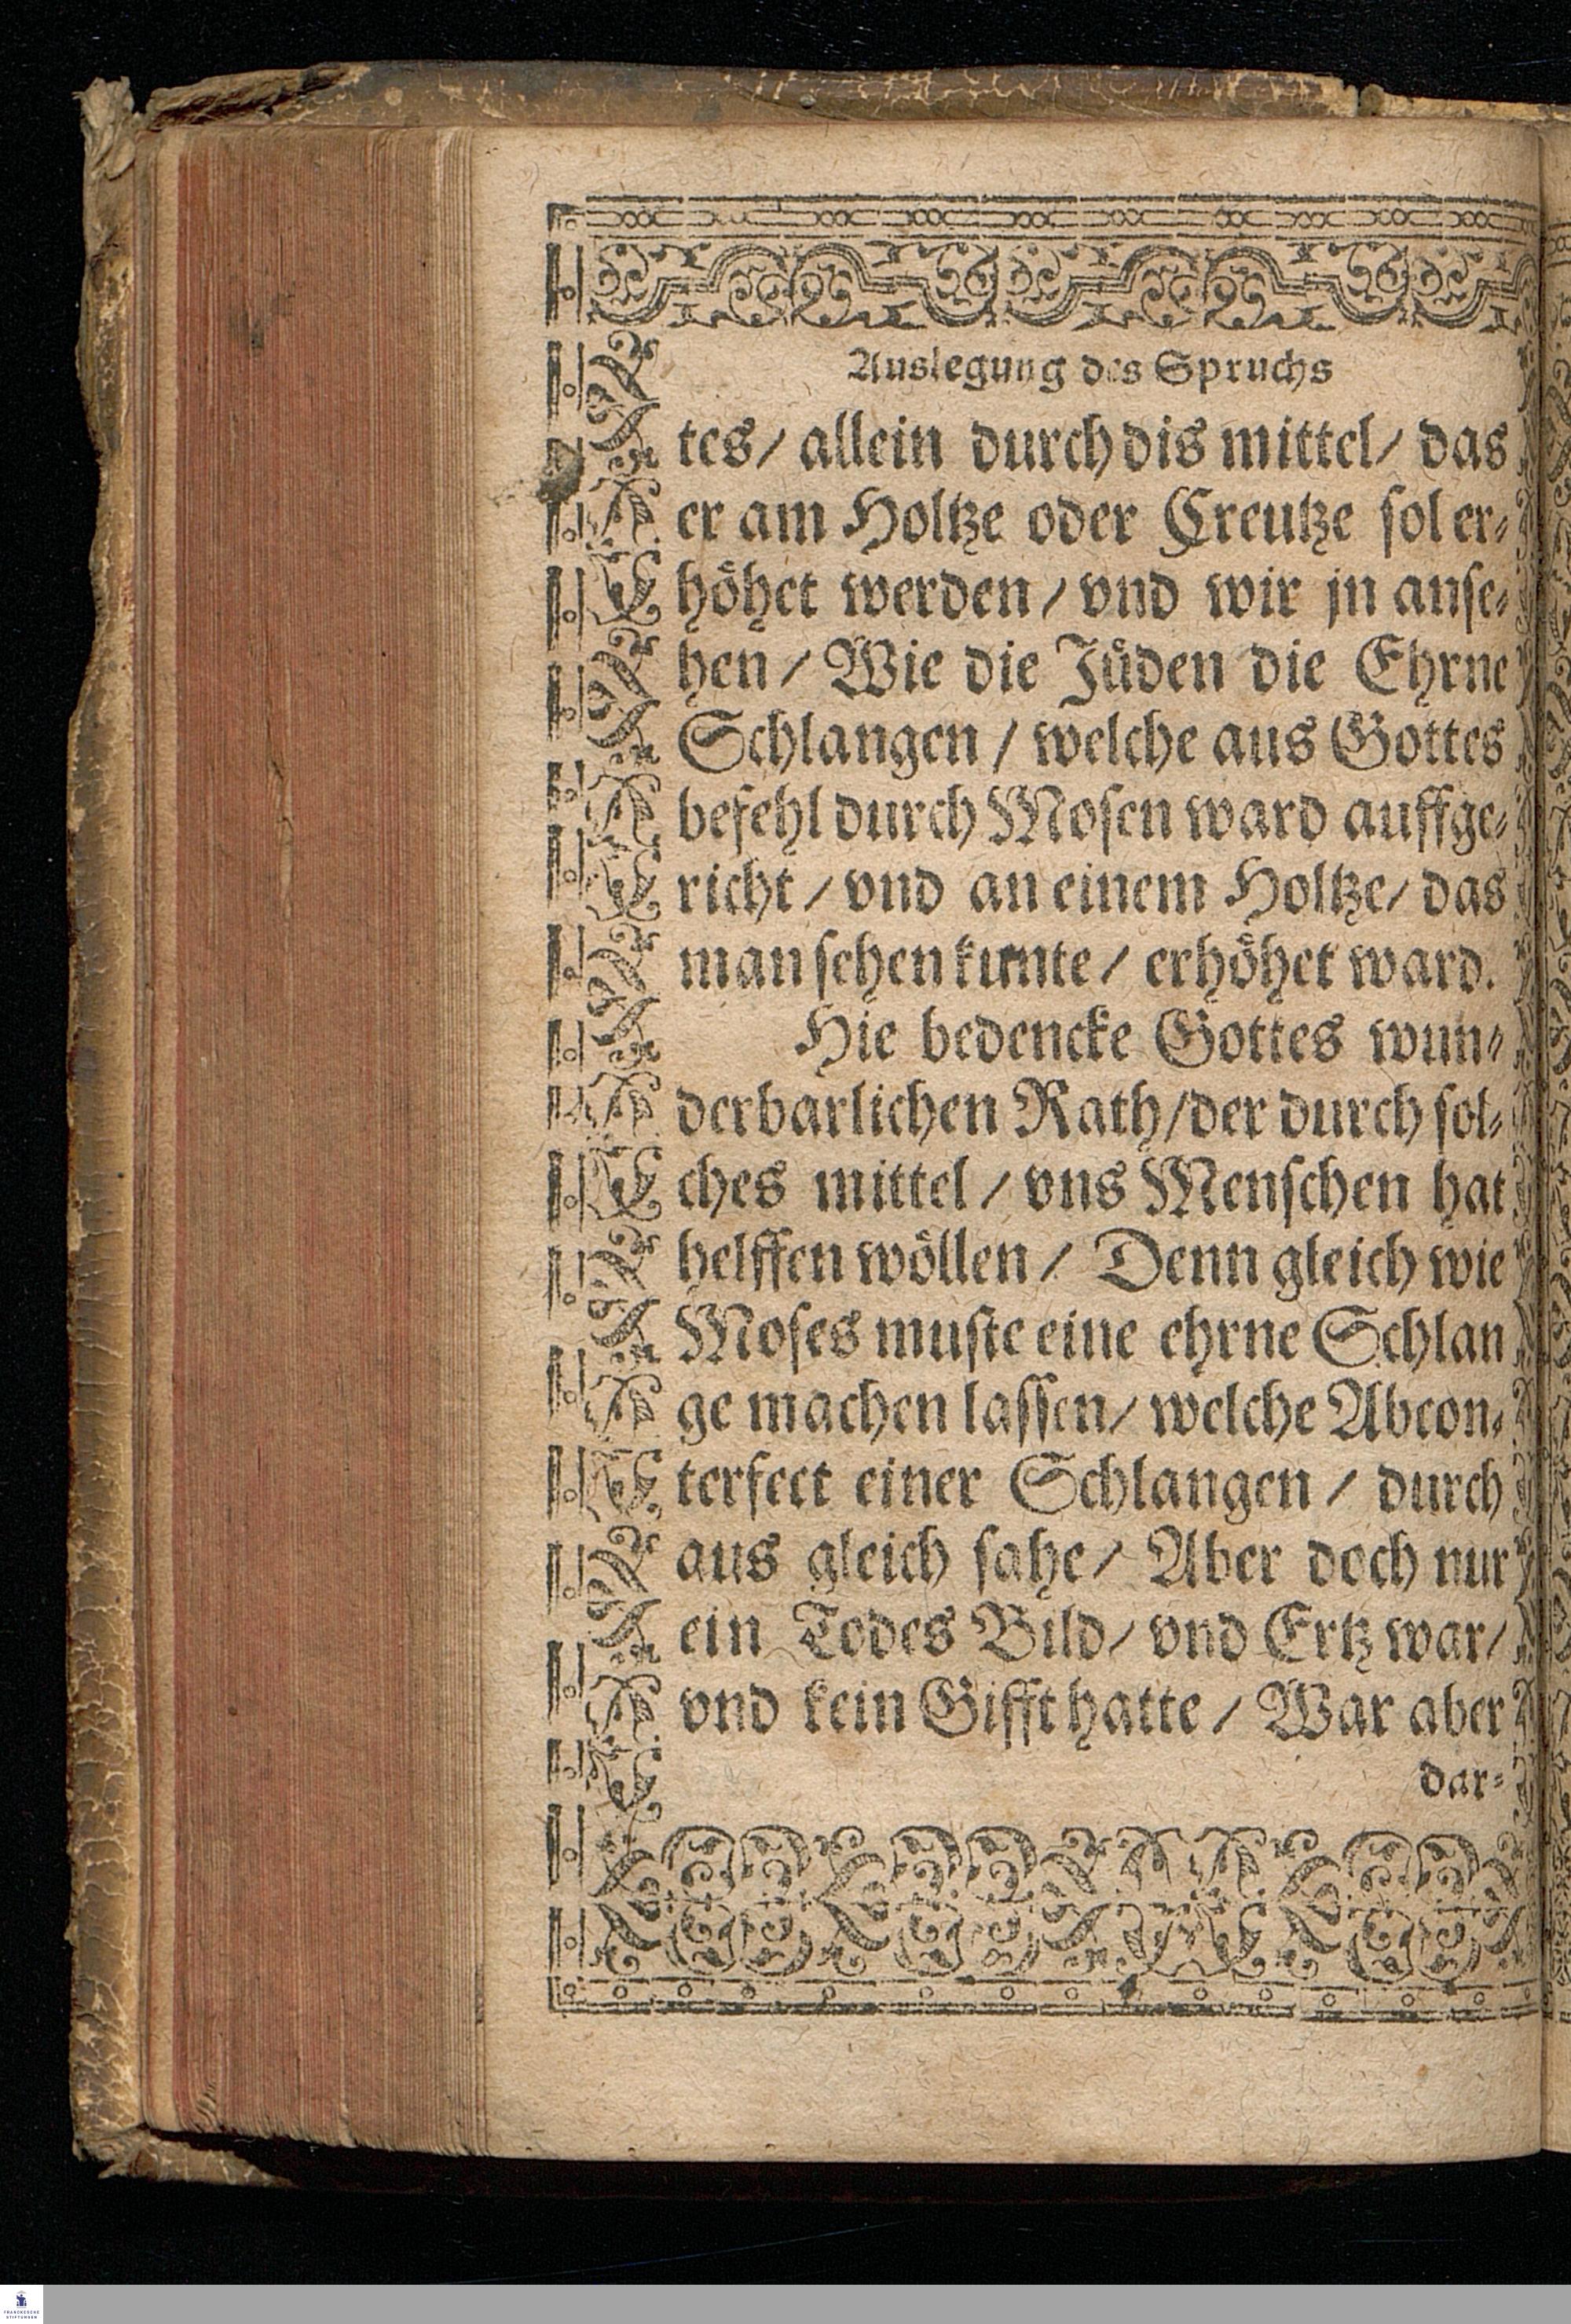 Auslegung des Spruchs
tes/ allein durch dis mittel/ das
er am Holtze oder Creutze sol er⸗
höhet werden/ vnd wir jn anse⸗
hen/ Wie die Jüden die Ehrne
Schlangen/ welche aus Gottes
befehl durch Mosen ward auffge⸗
richt/ vnd an einem Holtze/ das
man sehen kunte/ erhöhet ward.
Hie bedencke Gottes wun⸗
derbarlichen Rath/ der durch sol⸗
ches mittel/ vns Menschen hat
helffen wöllen/ Denn gleich wie
Moses muste eine ehrne Schlan
ge machen lassen/ welche Abcon⸗
terfect einer Schlangen/ durch
aus gleich sahe/ Aber doch nur
ein Todes Bild/ vnd Ertz war/
vnd kein Gifft hatte/ War aber
dar⸗
FRANCKESCHE
STIFTUNGEN